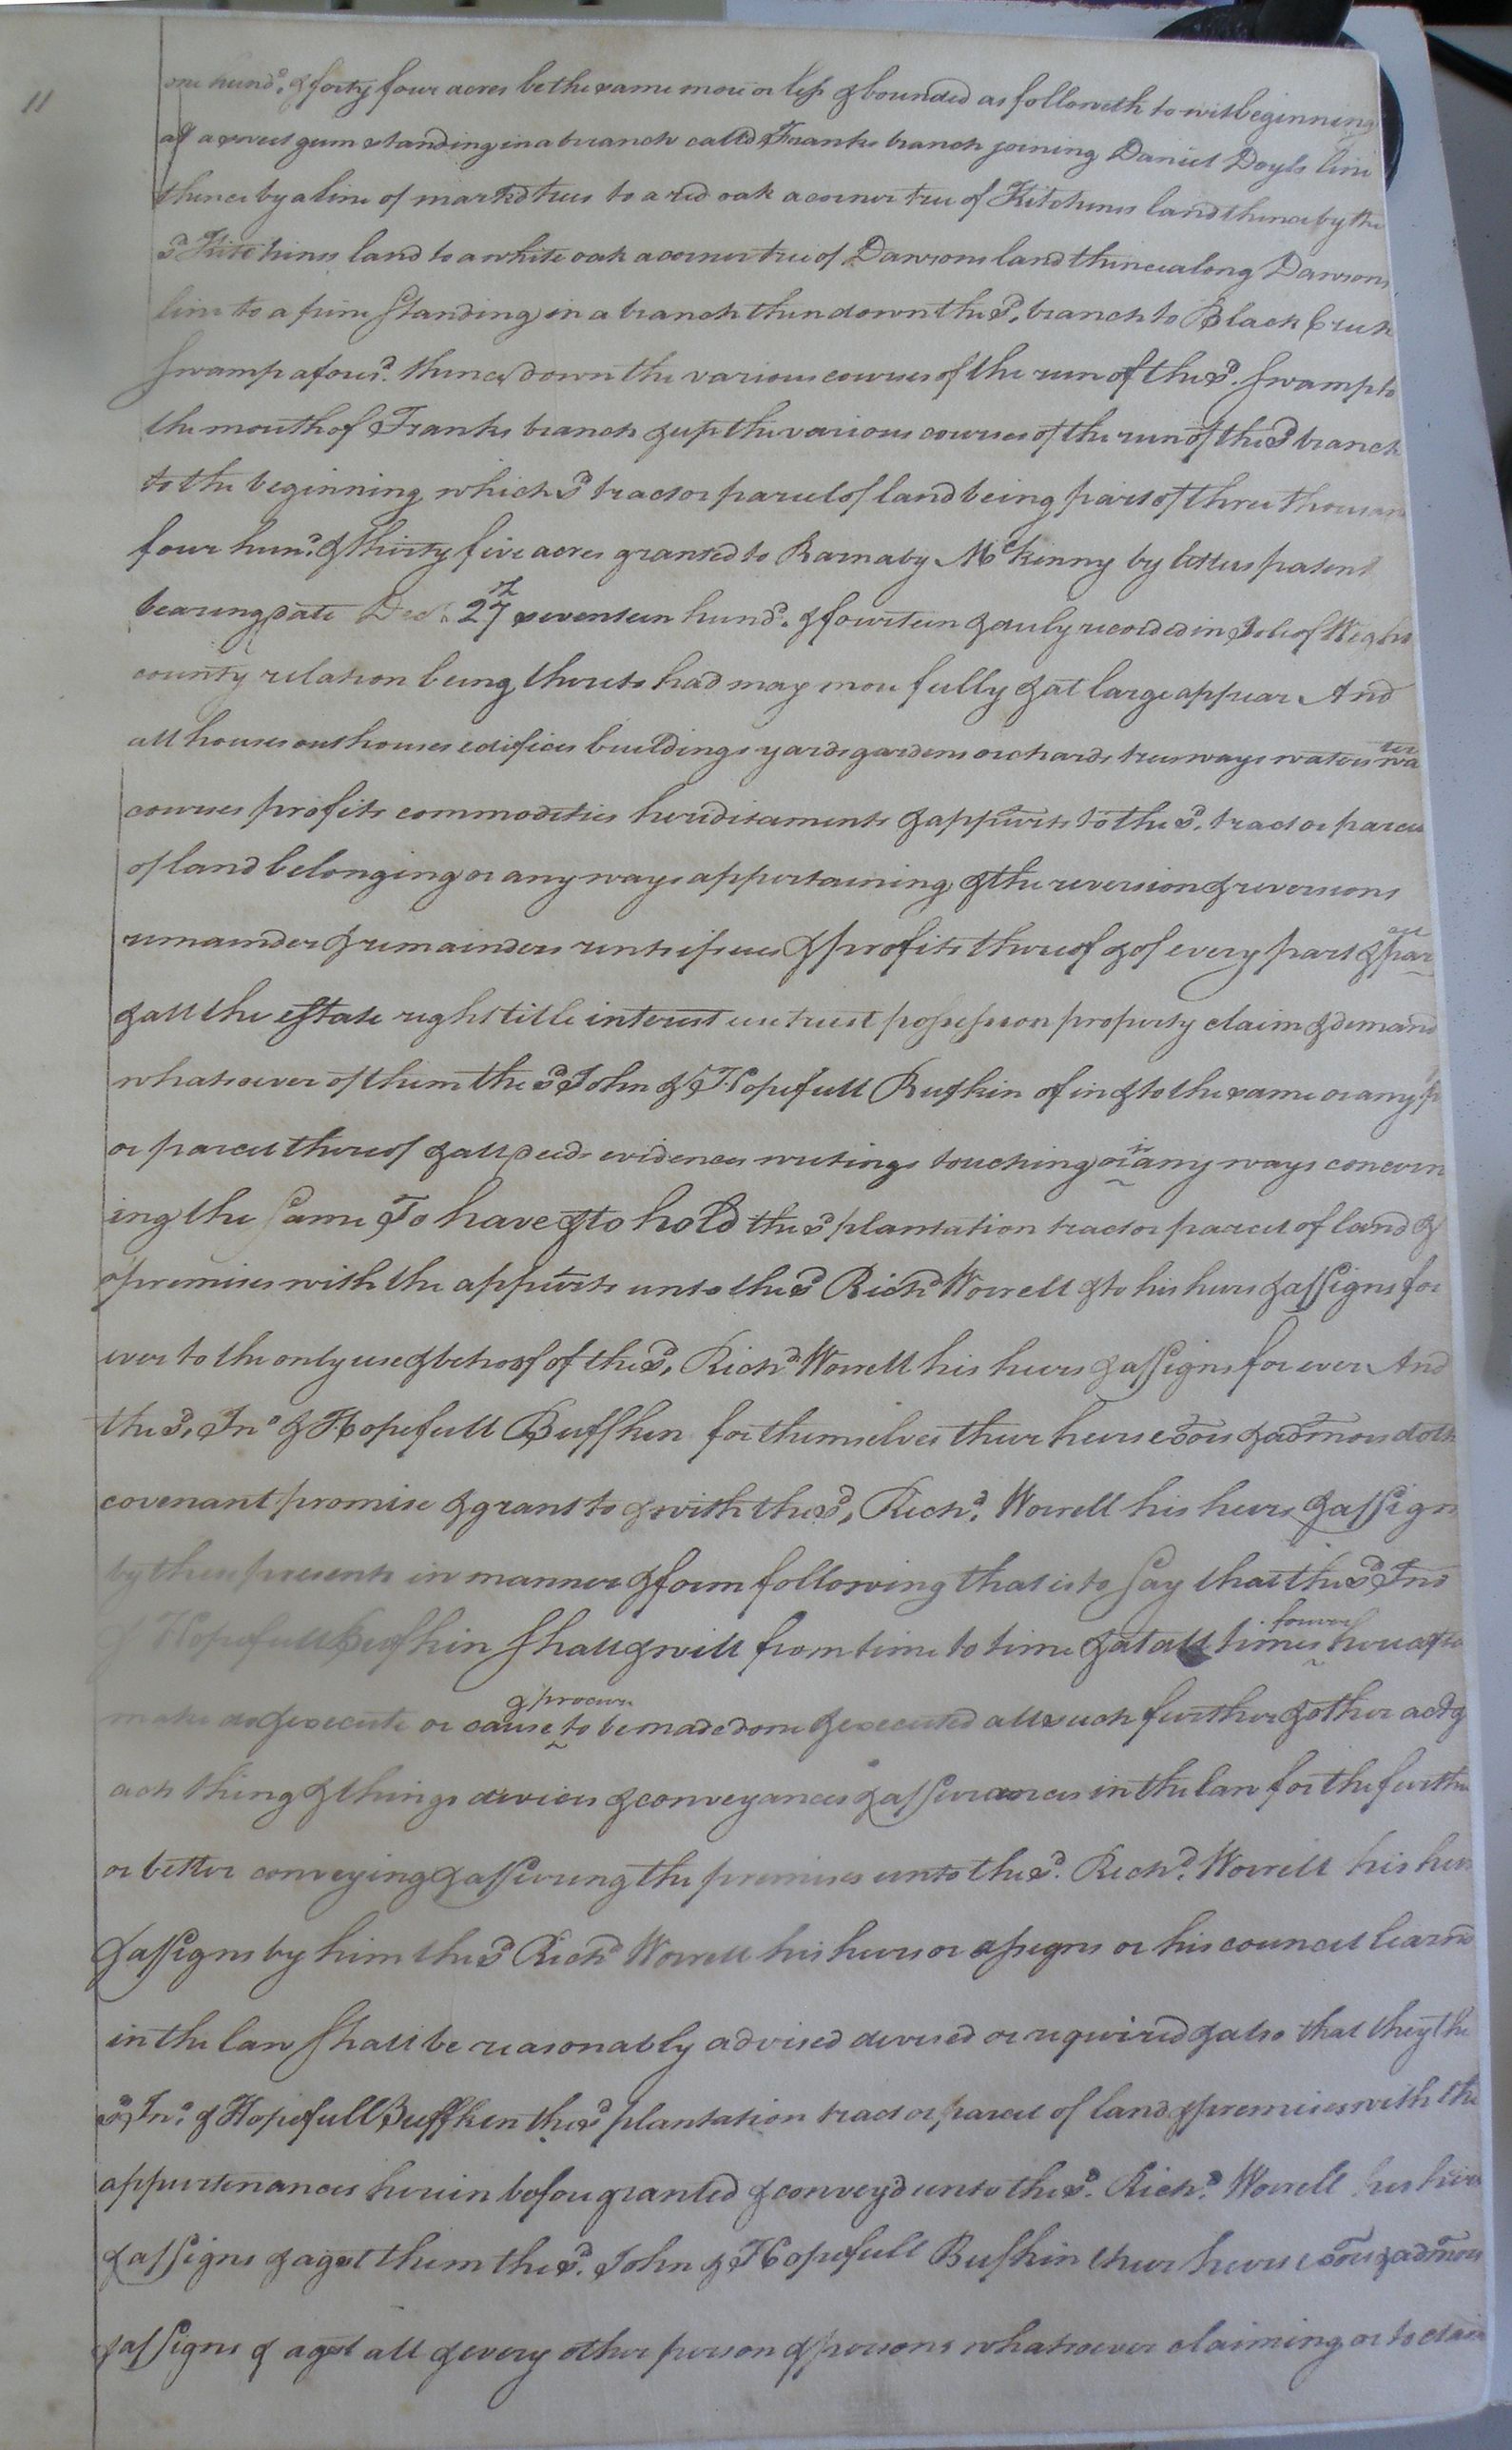 11
one hund.d & forty four acres be the same more or less & bounded as followeth to wit beginning
at a sweet gum standing in a branch calld Franks branch joining Daniel Doyls line
thence by a line of markd trees to a red oak a corner tree of Kitchens land thence by the
sd Kitchines land to a white oak a corner tree of Dawsons land thence along Dawsons
line to a pine standing in a branch then down the sd. branch to Black Creek
swamp aforesd. thence down the various courses of the run of the sd. swamp to
the mouth of Franks branch & up the various courses of the run of the sd branch
to the beginning which sd tract or parcel of land being part of three thousand
four hund. & thirty five acres granted to Barnaby Mckinny by letters patent
bearing date Decr. 27th seventeen hund.d & fourteen & duly recorded in Isle of Wight
county relation being thereto had may more fully & at large appear And
all houses outhouses edifices buildings yards gardens orchards trees ways waters wa ter
courses profits commodities heriditaments & appurts to the sd. tract or parcel
of land belonging or any ways appertaining & the reversion & reversions
remainder & remainders rents issues & profits thereof & of every part & par cel
& all the estate right title interest use trust possession property claim & demand
whatsoever of them the sd John & Hopefull Bufkin of in & to the same or any p
or parcel thereof & all deeds evidences writings touching or in any ways concern
ing the same To have & to hold the sd plantation tract or parcel of land &
premises with the appurts unto the sd Richd Worrell & to his heirs & assigns for
ever to the only use & behoof of the sd. Richd. Worrell his heirs & assigns for ever And
the sd. Jno & Hopefull Buffken for themselves their heirs exors & admors doth
covenant promise & grant to & with the sd. Richd. Worrell his heirs & assigns
by these presents in manner & form following that is to say that the sd Jno
& Hopefull Bufkin shall & will from time to time & at all times forever hereafte
make do & execute or cause & procure to be made done & executed all such further & other act &
acts thing & things devices & conveyances & assurances in the law for the further
or better conveying & assuring the premises unto the sd. Richd. Worrell his heirs
& assigns by him the sd Richd Worrell his heirs or assigns or his council learnd
in the law shall be reasonably advised devised or required & also that they the
sd Jno. & Hopefull Buffken the sd plantation tract or parcel of land & premises with the
appurtenances herein before granted & convey'd unto the sd. Richd. Worrell his heirs
& assigns & agst them the sd. John & Hopefull Bufkin their heirs exors & admors
& assigns & agst all & every other person & persons whatsoever claiming or to claim